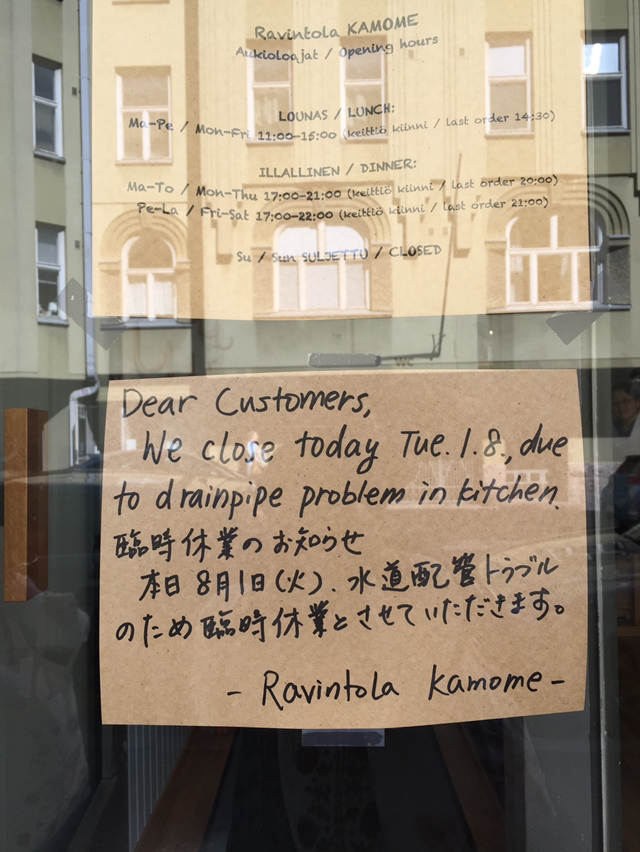 Ravintola KAMOME
Aukioloajat / Opening hours
LOUNAS / LUNCH:
Ma-Pe / Mon-Fri 11:00-15:00 (keittiö kiinni / last order 14:30)
ILLALLINEN / DINNER:
Ma-To / Mon-Thu 17:00-21:00 (keittiö kiinni / last order 20:00)
Pe-La / Fri-Sat 17:00-22:00 (keittiö kiinni / last order 21:00)
Su / Sun SULJETTU / CLOSED
Dear Customers,
We close today Tue. 1.8., due
to drainpipe problem in kitchen.
臨時休業のお知らせ
本日 8月1日(火)、水道配管トラブル
のため臨時休業とさせていただきます。
- Ravintola Kamome -